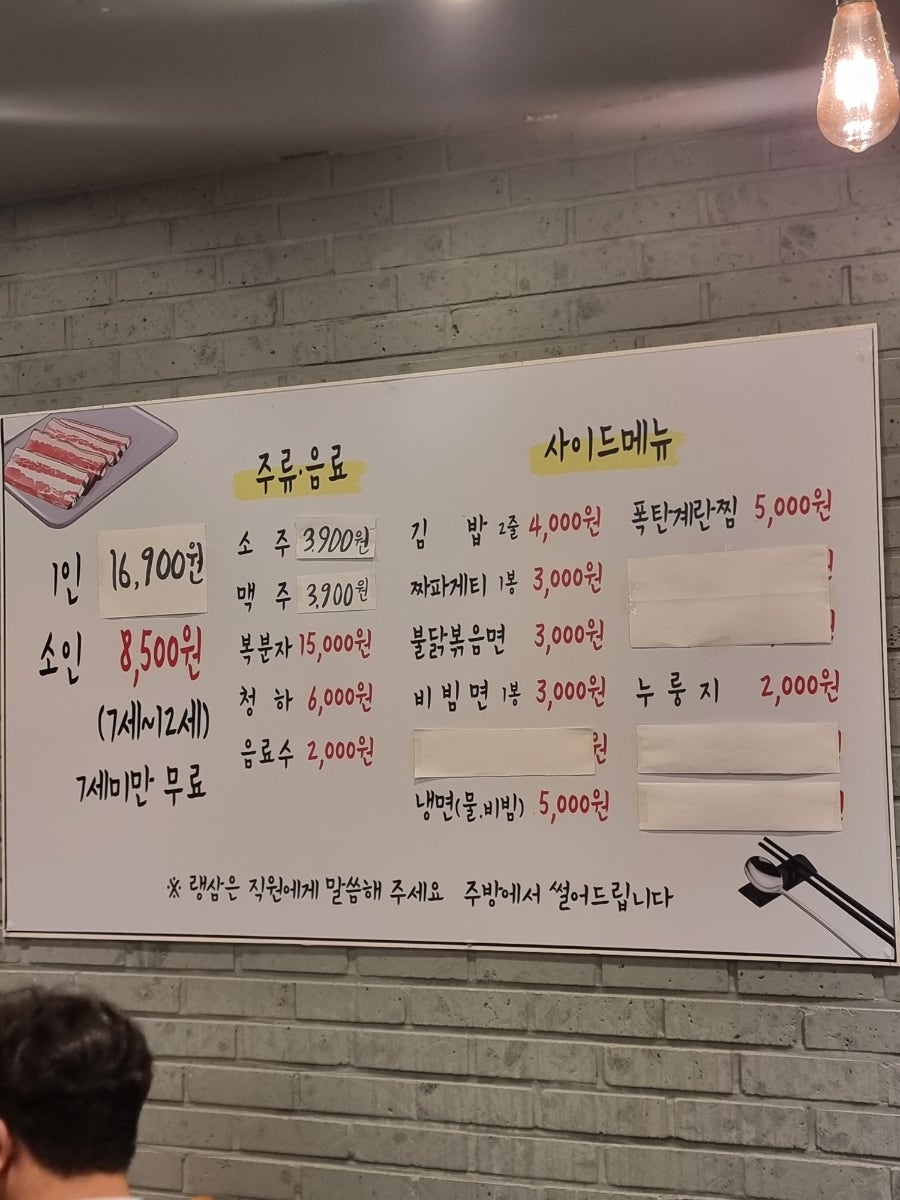 1인 16,900원
소인 8,500원
(7세~12세)
7세미만 무료
주류.음료
소 주 3,900원
맥 주 3,900원
복분자 15,000원
청 하 6,000원
음료수 2,000원
사이드메뉴
김 밥 2줄 4,000원
짜파게티 1봉 3,000원
불닭볶음면 3,000원
비빔면 1봉 3,000원
원
냉면(물.비빔) 5,000원
폭탄계란찜 5,000원
누룽지 2,000원
※ 랭삼은 직원에게 말씀해 주세요 주방에서 썰어드립니다